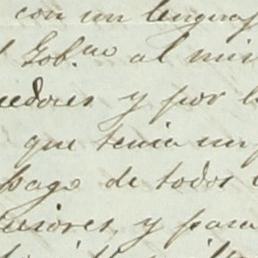 con un lenguaj
Gob.no al mis
edores y por l
que tenia un
pago de todos
y para